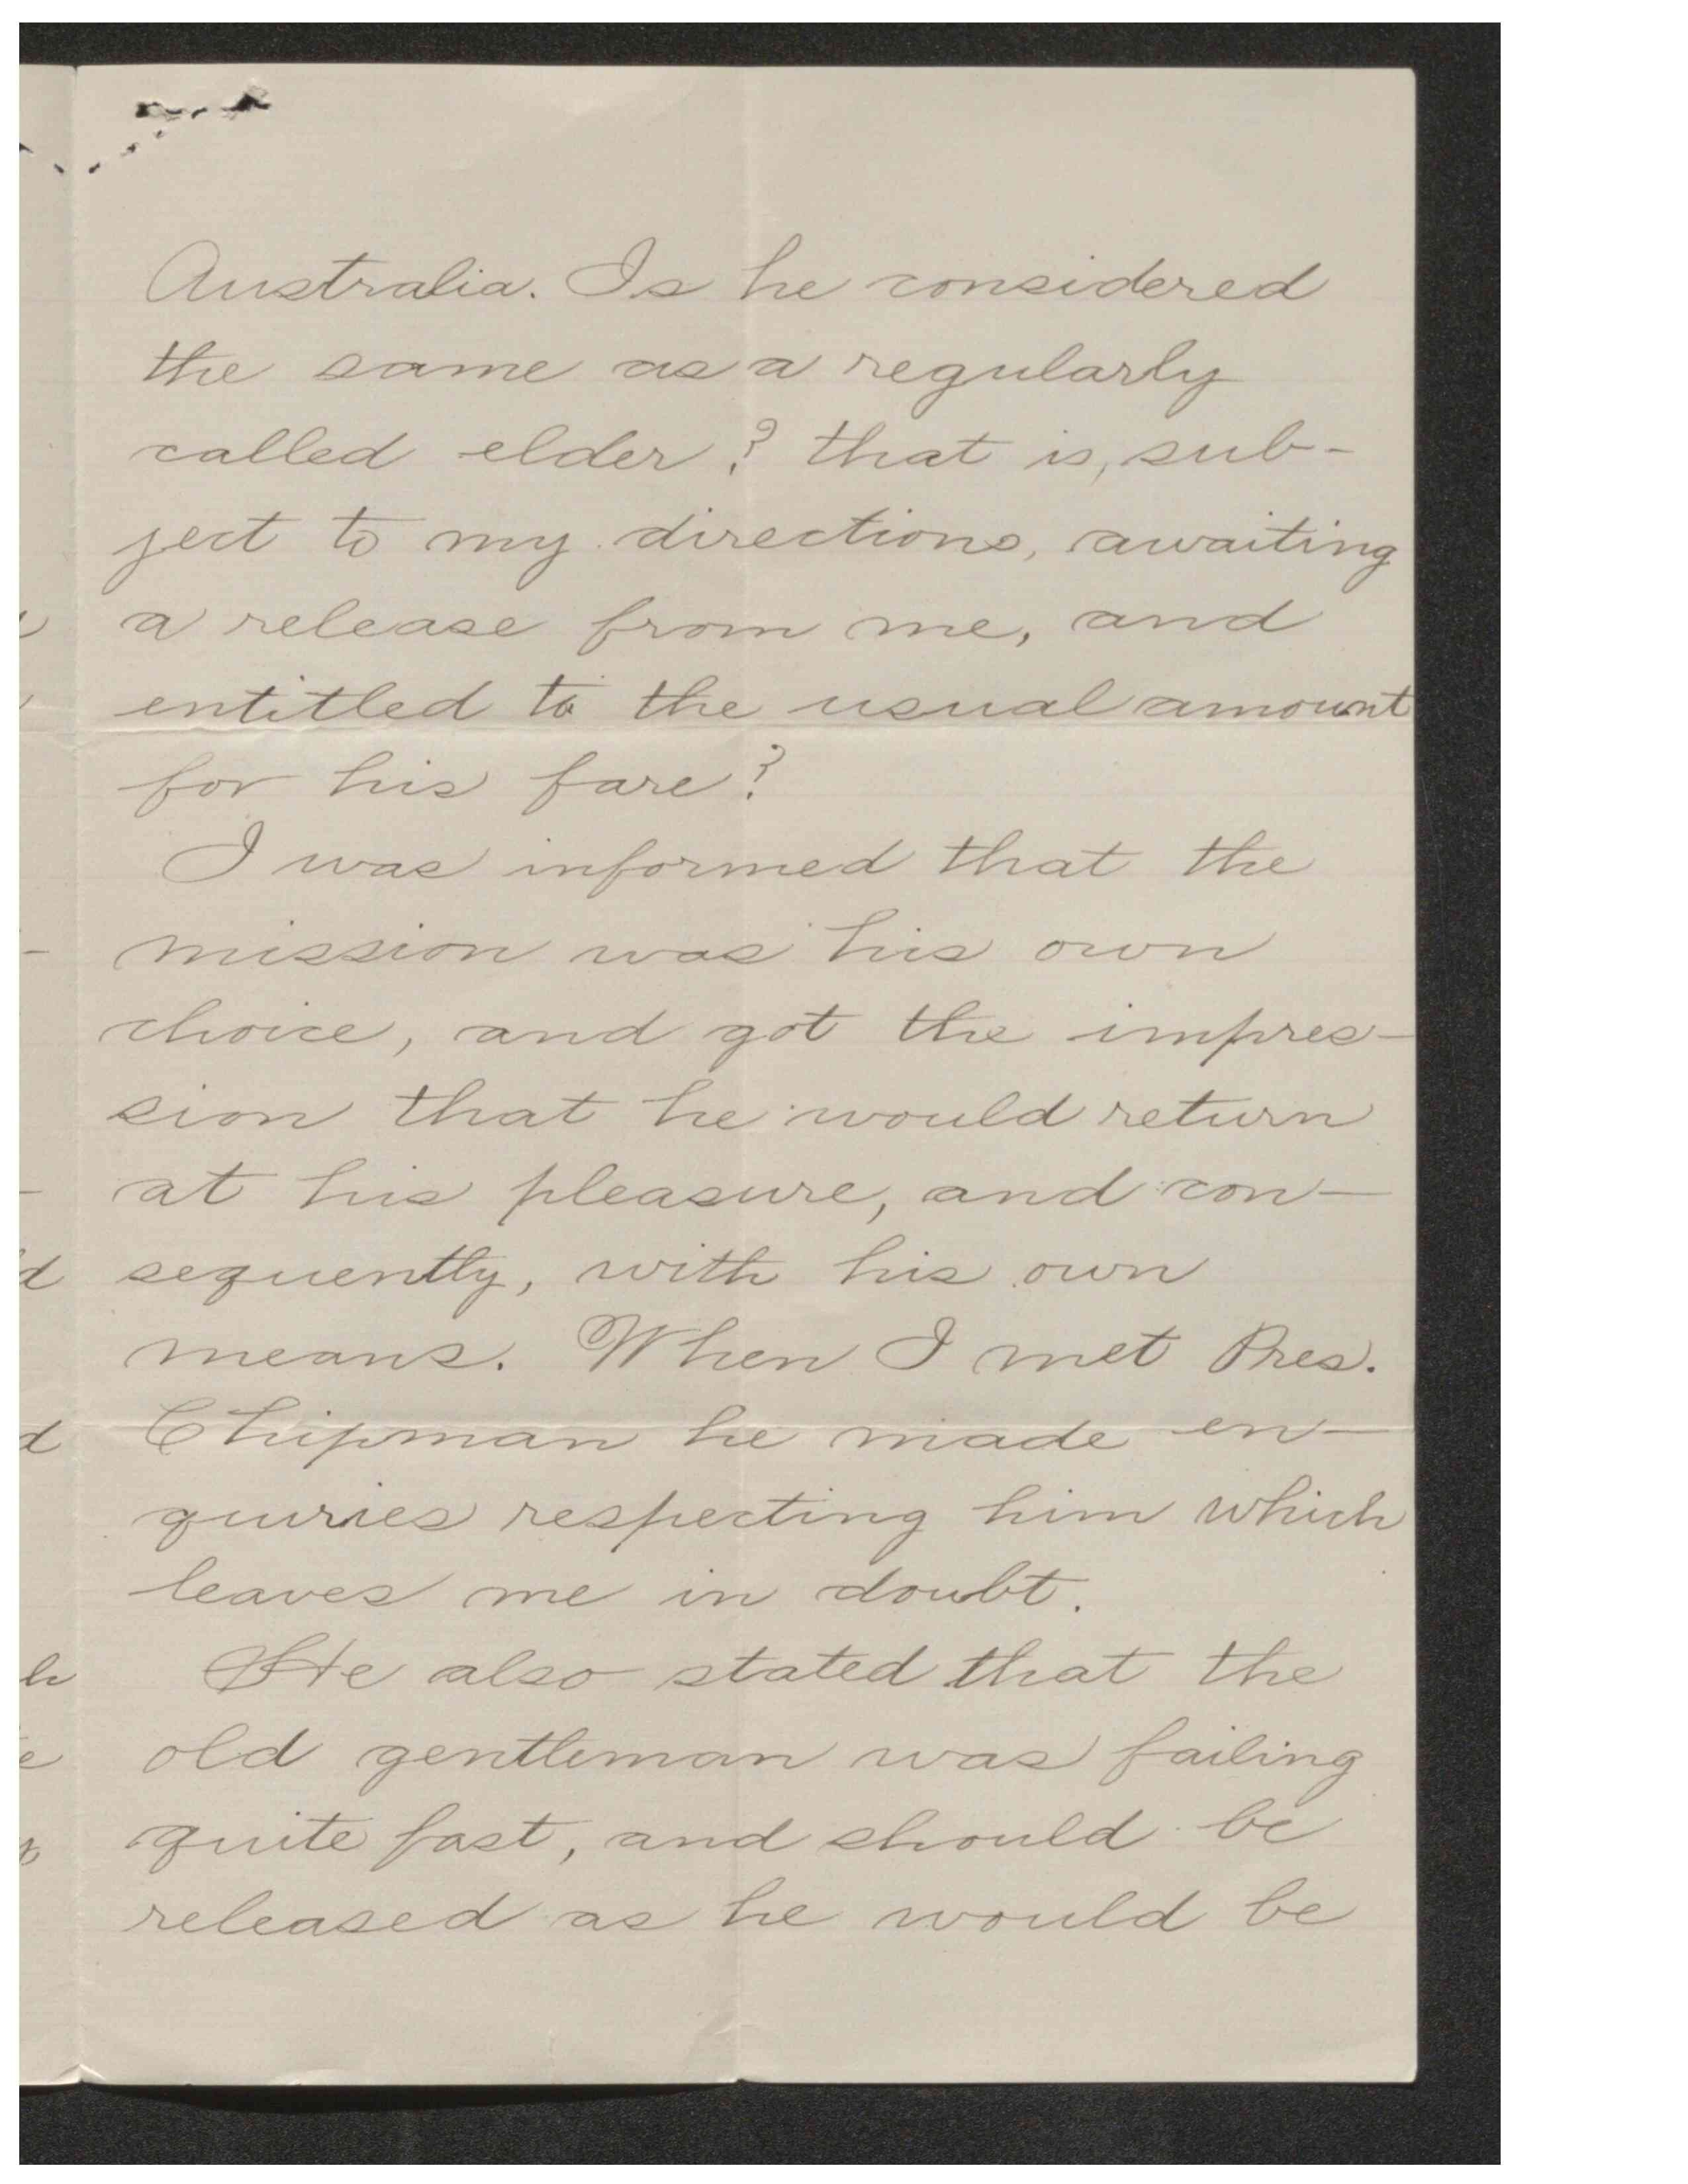 Australia. Is he considered
the same as a regularly
called elder? that is, sub-
ject to my directions, awaiting
a release from me, and
entitled to the usual amount
for his fare?
I was informed that the
mission was his own
choice, and got the impres-
sion that he would return
at his pleasure, and con-
sequently, with his own
means. When I met Pres.
Chipman he made en-
quiries respecting him which
leaves me in doubt.
He also stated that the
old gentleman was failing
quite fast, and should be
released as he would be